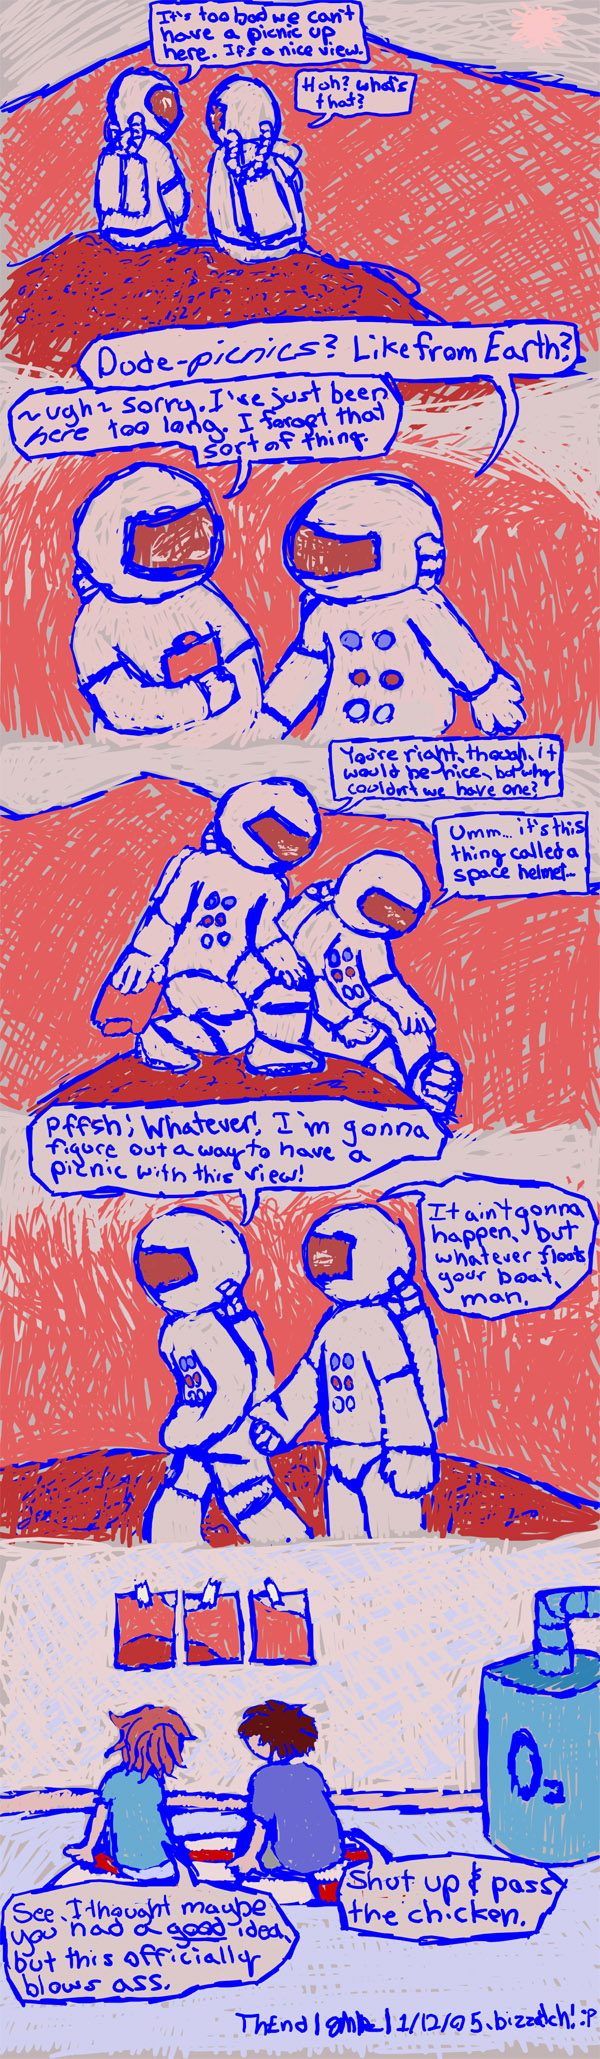 It's too bad we can't
have a picnic up
here. It's a nice view.
Huh? What's
that?
Dude-picnics? Like from Earth?
~ugh~ sorry. I've just been
here too long. I forget that
sort of thing.
You're right, though, it
would be nice, but why
couldn't we have one?
Umm... it's this
thing called a
space helmet...
Pffsh! Whatever! I'm gonna
figure out a way to have a
picnic with this view!
It ain't gonna
happen, but
whatever floats
your boat,
man.
O2
See, I thought maybe
you had a good idea,
but this officially
blows ass.
Shut up & pass
the chicken.
ThEnd 1/12/05, bizzatch! :P